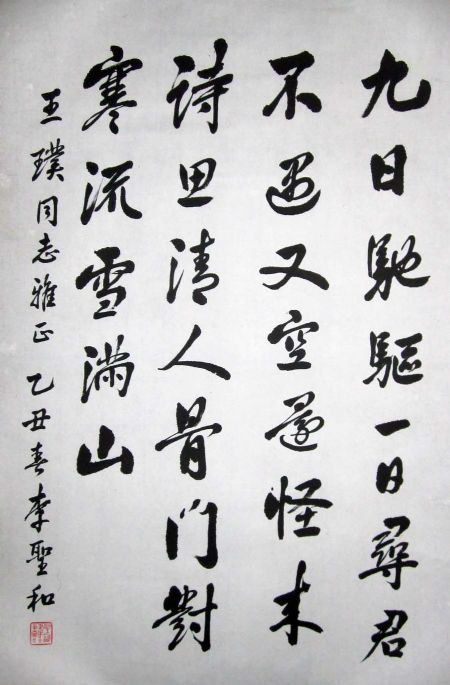 九日馳驅一日尋君
不遇又空還怪来
诗思清人骨门對
寒流雪满山
王璞同志雅正 乙丑春李聖和